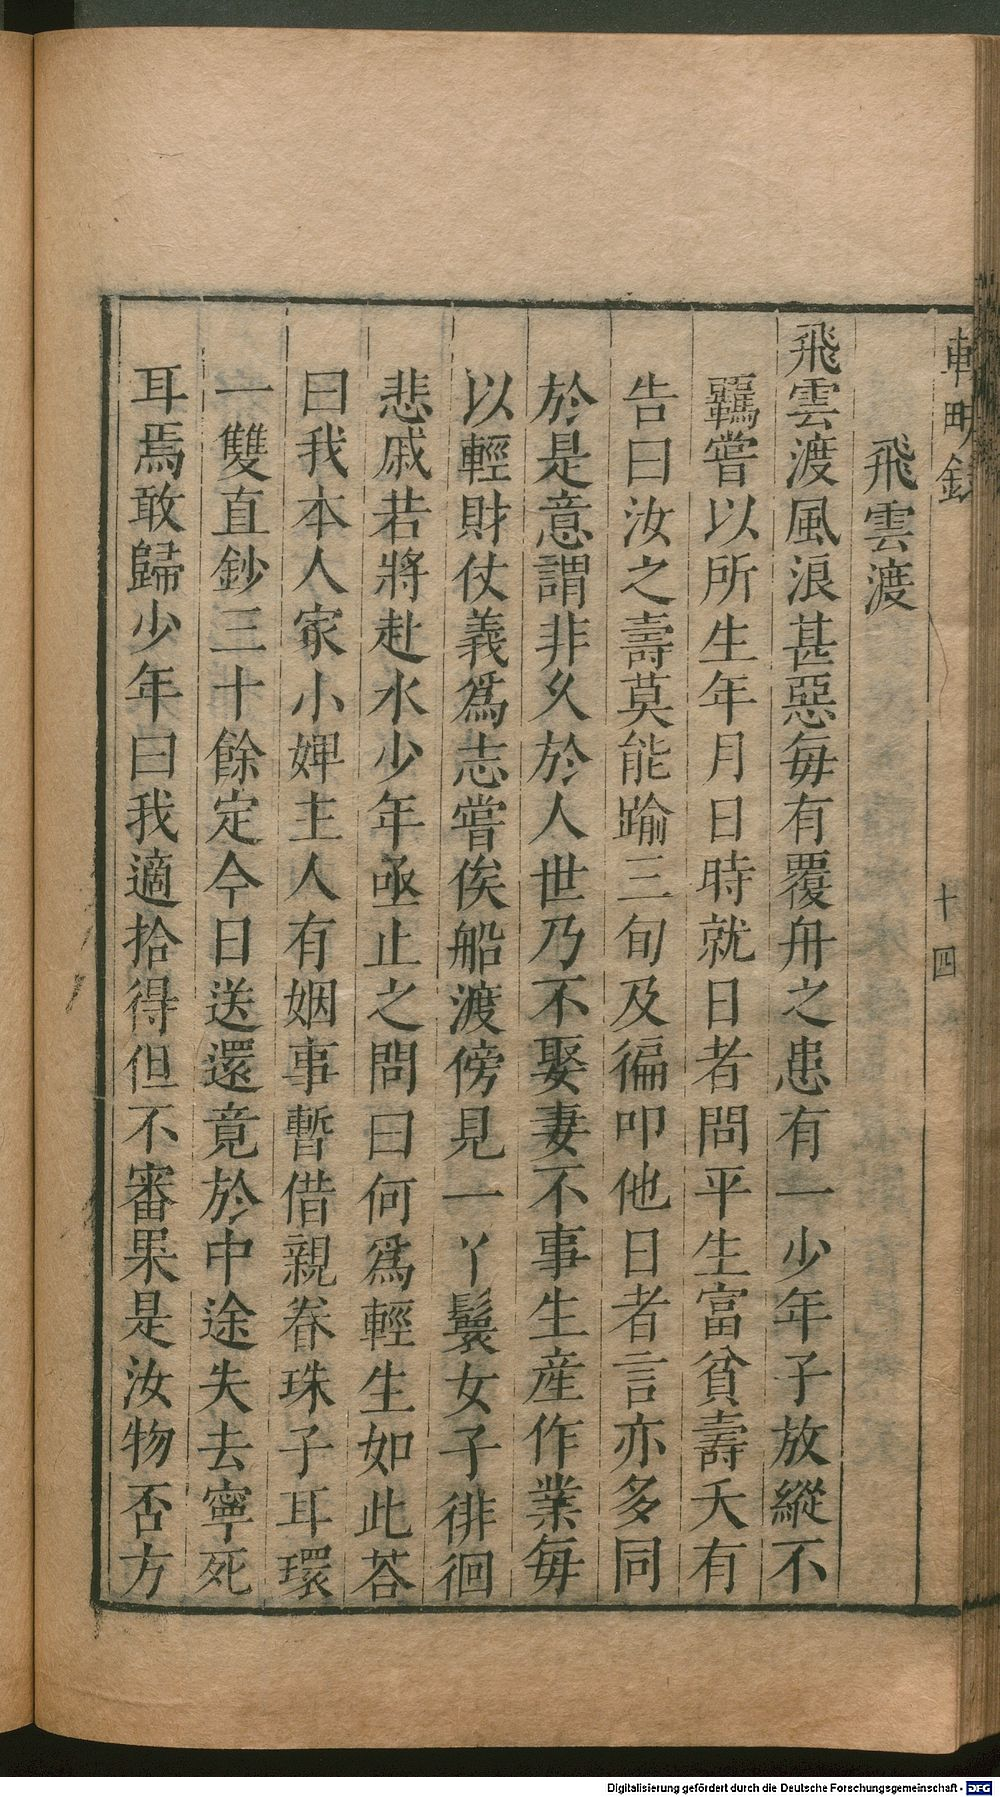 飛雲渡
飛雲渡風浪甚惡每有覆舟之患有一少年子放縱不
羈嘗以所生年月日時就日者問平生富貧壽夭有
告曰汝之壽莫能踰三旬及徧叩他日者言亦多同
於是意謂非久於人世乃不娶妻不事生産作業每
以輕財仗義爲志嘗俟船渡傍見一丫鬟女子徘徊
悲戚若將赴水少年亟止之問曰何爲輕生如此荅
曰我本人家小婢主人有姻事暫借親眷珠子耳環
一雙直鈔三十餘定今日送還竟於中途失去寧死
耳焉敢歸少年曰我適拾得但不審果是汝物否方
十四
Digitalisierung gefördert durch die Deutsche Forschungsgemeinschaft - DFG